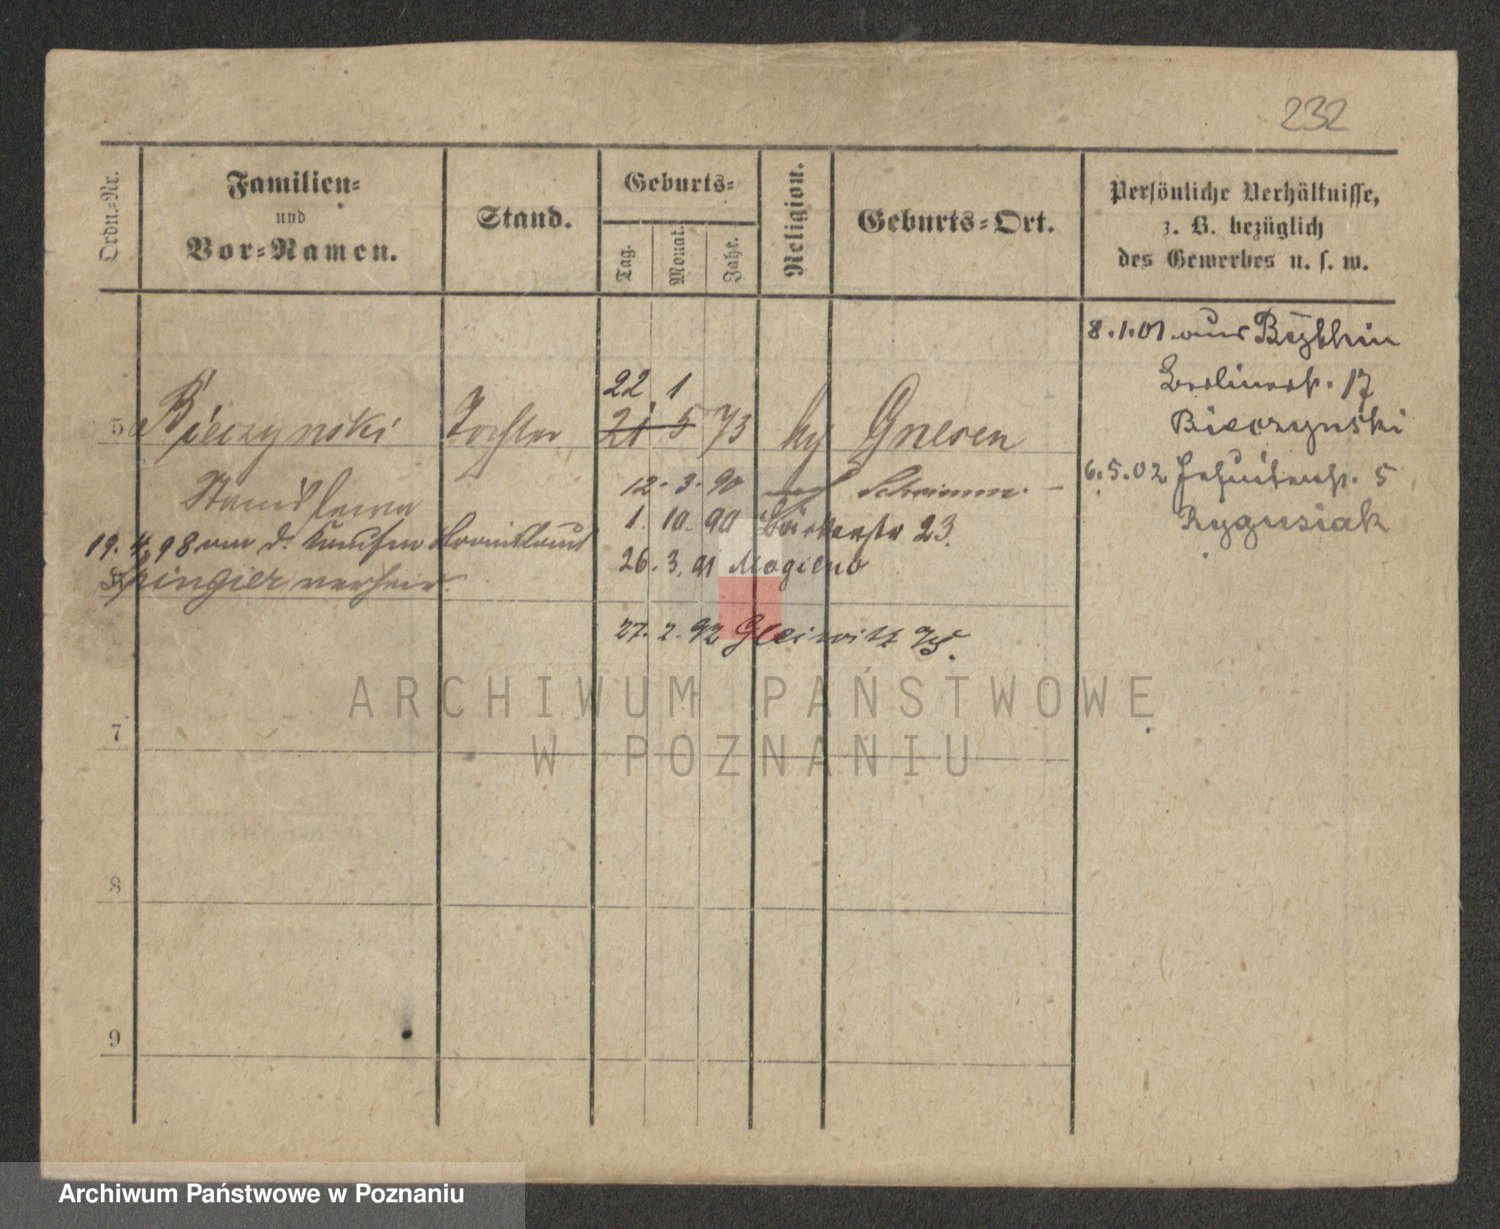 232
Ordn.-Nr.
Familien-
und
Vor-Namen.
Stand.
Geburts-
Tag.
Monat.
Jahr.
Religion.
Geburts-Ort.
Persönliche Verhältnisse,
z. B. bezüglich
des Gewerbes u. s. w.
8.1.01 aus
Berlinerstr. 17
Bieczynski
6.5.02 Jesuitenstr. 5
22. 1
5 Bieczynski Tochter 21 5 73 Gnesen
Stanislawa
12. 3. 90 nach Schrimm.
1. 10. 90 23.
19. 4. 98 an d. Kaufm
verheir.
26. 3. 91 Mogilno
27. 2. 92 Gleiwitz
ARCHIWUM PAŃSTWOWE
W POZNANIU
7
8
9
Archiwum Państwowe w Poznaniu